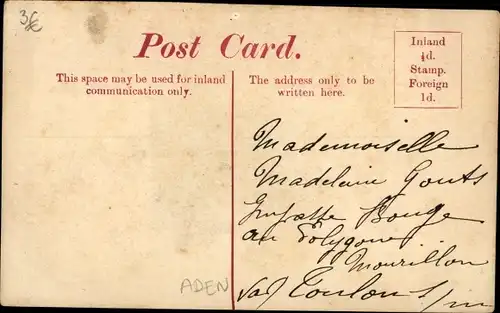 3€
Post Card.
This space may be used for inland
communication only.
The address only to be
written here.
Inland
½d.
Stamp.
Foreign
1d.
Mademoiselle
Madeleine Gouts
Impasse Bouge
au Polygone
Mourillon
Toulon s/m
ADEN